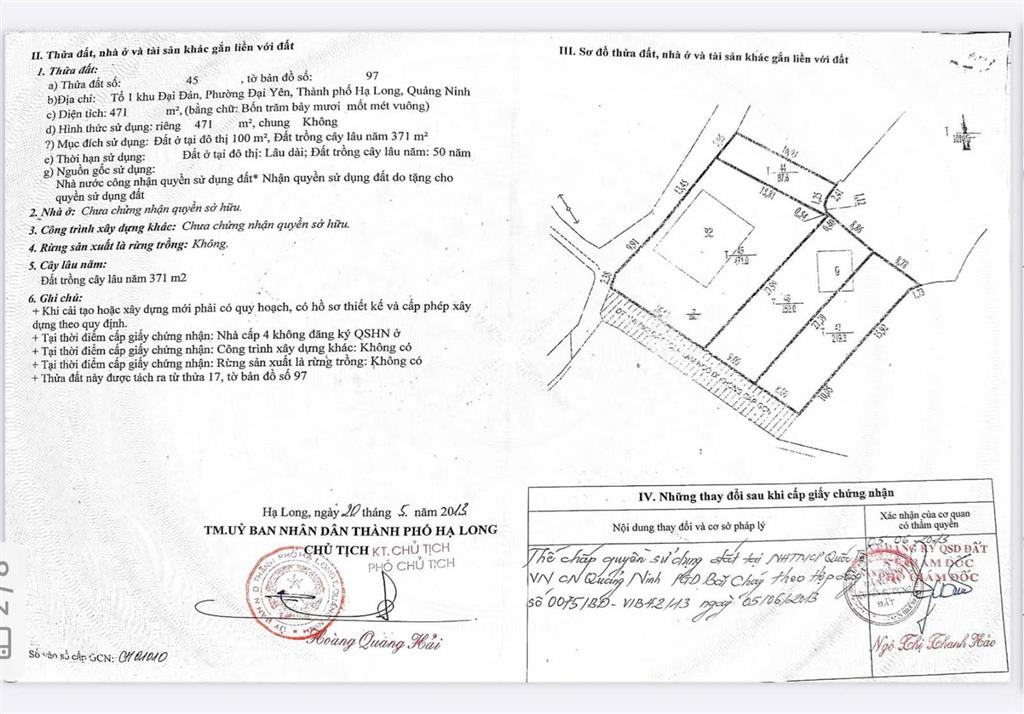 II. Thửa đất, nhà ở và tài sản khác gắn liền với đất
1. Thửa đất:
a) Thửa đất số: 45 , tờ bản đồ số: 97
b)Địa chỉ: Tổ 1 khu Đại Đán, Phường Đại Yên, Thành phố Hạ Long, Quảng Ninh
c) Diện tích: 471 m², (bằng chữ: Bốn trăm bảy mươi mốt mét vuông)
d) Hình thức sử dụng: riêng 471 m², chung Không
?) Mục đích sử dụng: Đất ở tại đô thị 100 m², Đất trồng cây lâu năm 371 m²
e) Thời hạn sử dụng: Đất ở tại đô thị: Lâu dài; Đất trồng cây lâu năm: 50 năm
g) Nguồn gốc sử dụng:
Nhà nước công nhận quyền sử dụng đất* Nhận quyền sử dụng đất do tặng cho
quyền sử dụng đất
2. Nhà ở: Chưa chứng nhận quyền sở hữu.
3. Công trình xây dựng khác: Chưa chứng nhận quyền sở hữu.
4. Rừng sản xuất là rừng trồng: Không.
5. Cây lâu năm:
Đất trồng cây lâu năm 371 m2
6. Ghi chú:
+ Khi cải tạo hoặc xây dựng mới phải có quy hoạch, có hồ sơ thiết kế và cấp phép xây
dựng theo quy định.
+ Tại thời điểm cấp giấy chứng nhận: Nhà cấp 4 không đăng ký QSHN ở
+ Tại thời điểm cấp giấy chứng nhận: Công trình xây dựng khác: Không có
+ Tại thời điểm cấp giấy chứng nhận: Rừng sản xuất là rừng trồng: Không có
+ Thửa đất này được tách ra từ thửa 17, tờ bản đồ số 97
Hạ Long, ngày 20 tháng 5. năm 2013
TM.UỶ BAN NHÂN DÂN THÀNH PHỐ HẠ LONG
CHỦ TỊCH KT. CHỦ TỊCH
PHÓ CHỦ TỊCH
Hoàng Quang Hải
Số vào sổ cấp GCN: CH 01010
III. Sơ đồ thửa đất, nhà ở và tài sản khác gắn liền với đất
13,45
13,81
1,25
2,42
1,12
0,54
8,86
8,78
1,73
9,91
92
45
471.0
G
9,00
15,92
10,85
IV. Những thay đổi sau khi cấp giấy chứng nhận
Nội dung thay đổi và cơ sở pháp lý
Xác nhận của cơ quan
có thẩm quyền
05.06.2013
Thế chấp quyền sử dụng đất tại NHTMCP Quốc Tế
VN CN Quảng Ninh PGD Bãi Cháy theo Hợp đồng
số 0075/BD - VIB42/13 ngày 05/06/2013
ĐĂNG KÝ QSD ĐẤT
PHÓ GIÁM ĐỐC
Ngô Thị Thanh Hảo